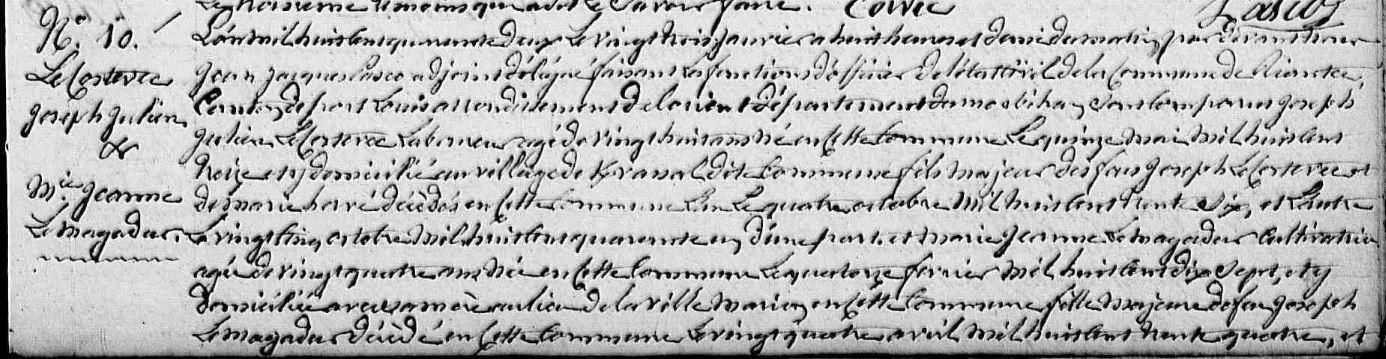 Le troisieme temoins qui a dit ne Savoir faire. Corvec Pasco
N.° 10.
Le Corterec
Joseph Julien
&
M.ie Jeanne
Le magadur.
L'an mil huit Cent quarante deux Le vingt trois janvier a huit heures et demi du matin, par devant nous
Jean Jacques Pasco adjoint délégué faisant Les fonctions d'officier de l'état Civil de la Commune de Riantec,
Canton de port Louis arrondissement de Lorient département du morbihan, Sont Comparus joseph
julien Le Corterec Laboureur agé de vingt huit ans né en Cette Commune Le quinze mai mil huit cent
treize et y domicilié au village de dite Commune fils majeur des feus joseph Le Corterec et
de marie hervé décédés en Cette Commune L'un Le quatre octobre mil huit Cent trente Six, et L'autre
Le vingt Cinq octobre mil huit Cent quarante un, d'une part, et marie jeanne Le magadur Cultivatrice
agée de vingt quatre ans née en Cette Commune Le quatorze fevrier mil huit Cent dix Sept, et y
domiciliée avec sa mère au lieu de la ville marion en Cette Commune fille majeure de feu joseph
Le magadur décédé en Cette Commune Le vingt quatre avril mil huit Cent trente quatre, et